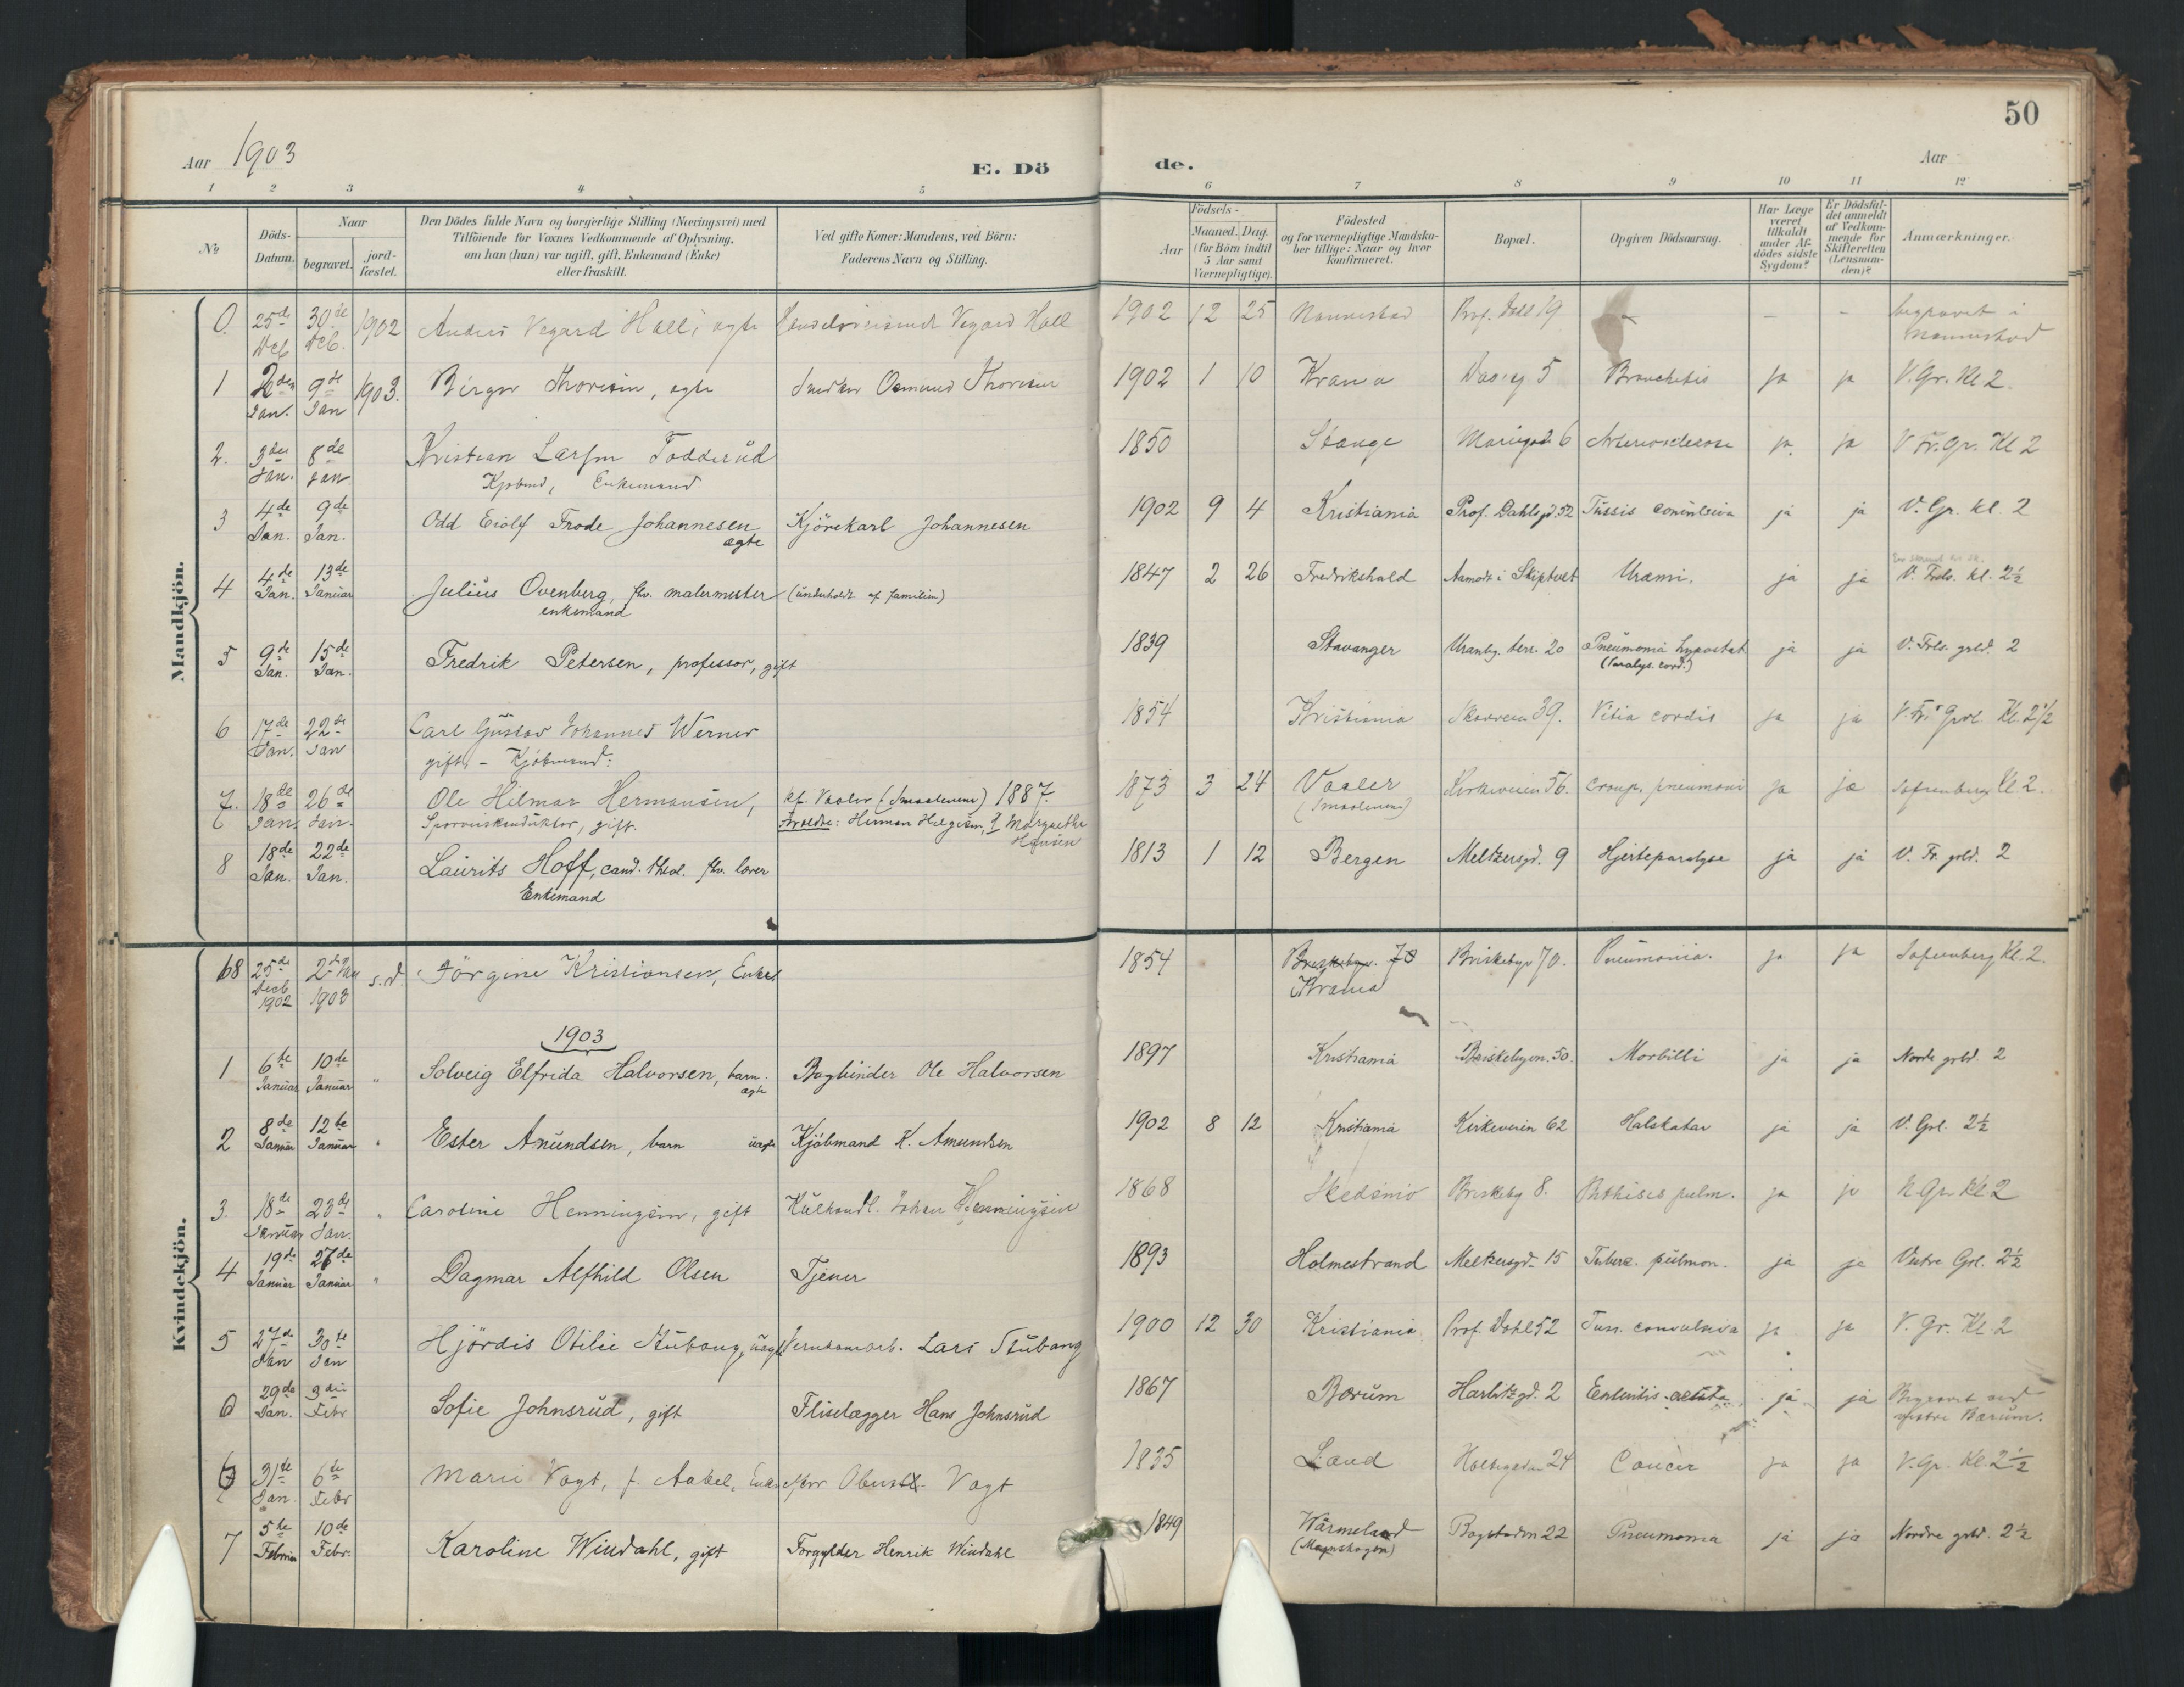 50
Aar 1903
E. Döde.
Aar
1 2 3 4 5 6 7 8 9 10 11 12
No
Döds-Datum.
Naar
begravet.
jordfæstet.
Den Dödes fulde Navn og borgerlige Stilling (Næringsvei) med
Tilföiende for Voxnes Vedkommende af Oplysning,
om han (hun) var ugift, gift, Enkemand (Enke)
eller fraskilt.
Ved gifte Koner: Mandens, ved Börn:
Faderens Navn og Stilling.
Födsels-
Aar
Maaned. Dag.
(for Börn indtil
5 Aar samt
Værnepligtige).
Födested
og for værnepligtige Mandskaber tillige: Naar og hvor
konfirmeret.
Bopæl.
Opgiven Dödsaarsag.
Har Læge
været
tilkaldt
under Afdödes sidste
Sygdom?
Er Dödsfaldet anmeldt
af Vedkommende for
Skifteretten
(Lensmanden)?
Anmærkninger.
Mandkjön.
0. 25de Dcb 30de Dcb. 1902 Vegard Hall, ægte Vegard Hall 1902 12 25 19 - - begravet i
1 2den Jan. 9de Jan 1903. Birger Thoresen, ægte Osmund Thoresen 1902 1 10 Krania 5 Bronchitis ja ja V. Gr. Kl 2.
2. 3die Jan. 8de Jan Kristian Larsen Fodderud
Kjøbmd, Enkemand. 1850 Stange 6 ja. ja V. Fr. Gr. Kl 2
3 4de Jan. 9de Jan. Odd Eiolf Frode Johannesen ægte Kjörekarl Johannesen 1902 9 4 Kristiania Prof. Dahlsgd. 52 Tussis convulsiva ja ja V. Gr. kl. 2
4 4de Jan. 13de Januar Julius Ovenberg, fhv. malermester
enkemand (underholdt af familien) 1847 2 26 Fredrikshald Aamodt i Skiptvet Urämi. ja ja V. Frels. kl. 2½
5 9de Jan. 15de Jan. Fredrik Petersen, professor, gift 1839 Stavanger Uranbg. terr. 20 Pneumonia hypostat
(Paralys. cord.) ja ja V. Frls. grld. 2
6 17de Jan. 22de Jan Carl Gustav Johannes Werner
gift, - Kjöbmand: 1854 Kristiania 39. Vitia cordis ja ja V. Fr. Grvl. Kl. 2½
7. 18de Jan. 26de Jan. Ole Hilmar Hermansen,
Sporveiskonduktør, gift. kf. Vaaler (Smaalenene) 1887.
Forældre: Herman Helgesen, & Margrethe
Hansen 1873 3 24 Vaaler
(Smaalenene) Kirkeveien 56. Croup. pneumoni ja ja Sofienberg Kl 2.
8 18de Jan. 22de Jan. Laurits Hoff, cand. theol. fhv. lærer
Enkemand 1813 1 12 Bergen Meltzersgd. 9 Hjerteparalyse ja ja V. Fr. grld. 2
Kvindekjön.
68 25de Decb 1902 2den Jan 1903 s.d. Jörgine Kristiansen, Enke 1854 Briskebyv. 70
Krania Briskebyv 70. Pneumonia. ja ja Sofienberg Kl. 2.
1903
1 6te Januar 10de Januar " Solveig Elfrida Halvorsen, barn
ægte Bogbinder Ole Halvorsen 1897 Kristiania Briskebyvn. 50. Morbilli ja ja Nordr grld. 2
2 8de Januar 12te Januar " Ester Amundsen, barn uægte Kjöbmand K. Amundsen 1902 8 12 Kristiania Kirkeveien 62 Halskatar ja ja V. Grl. 2½
3. 18de Januar 23de Jan. " Caroline Henningsen, gift Kulhandl. Johan Henningsen 1868 Skedsmo Briskeby 8. Phthisis pulm. ja ja N Gr. Kl 2
4 19de Januar 27de Januar " Dagmar Alfhild Olsen Tjener 1893 Holmestrand Meltzersgd. 15 Tuberc. pulmon. ja ja Vestre Grl. 2½
5 27de Jan 30te Jan Hjördis Otilie Stubang, uægte Jernbanearb. Lars Stubang 1900 12 30 Kristiania Prof. Dahl 52 Tuss. convulsiva ja ja V. Gr. Kl. 2
6 29de Jan. 3die Febr Sofie Johnsrud, gift Fliselægger Hans Johnsrud 1867 Bærum Harbitzgd. 2 Enteritis acuta ja ja Begravet ved
vestre Bærum.
6 31te Jan. 6te Febr Marie Vogt, f. Aabel, Enke efter Oberstl. Vogt 1835 Land Holtegaden 24 Cancer ja ja V. Gr. Kl. 2½
7 5te Februar 10de Febr. Karoline Windahl, gift Forgylder Henrik Windahl 1849 Wärmeland
(Mangskogen) Bogstadvn 22 Pneumonia ja ja Nordre grld. 2½